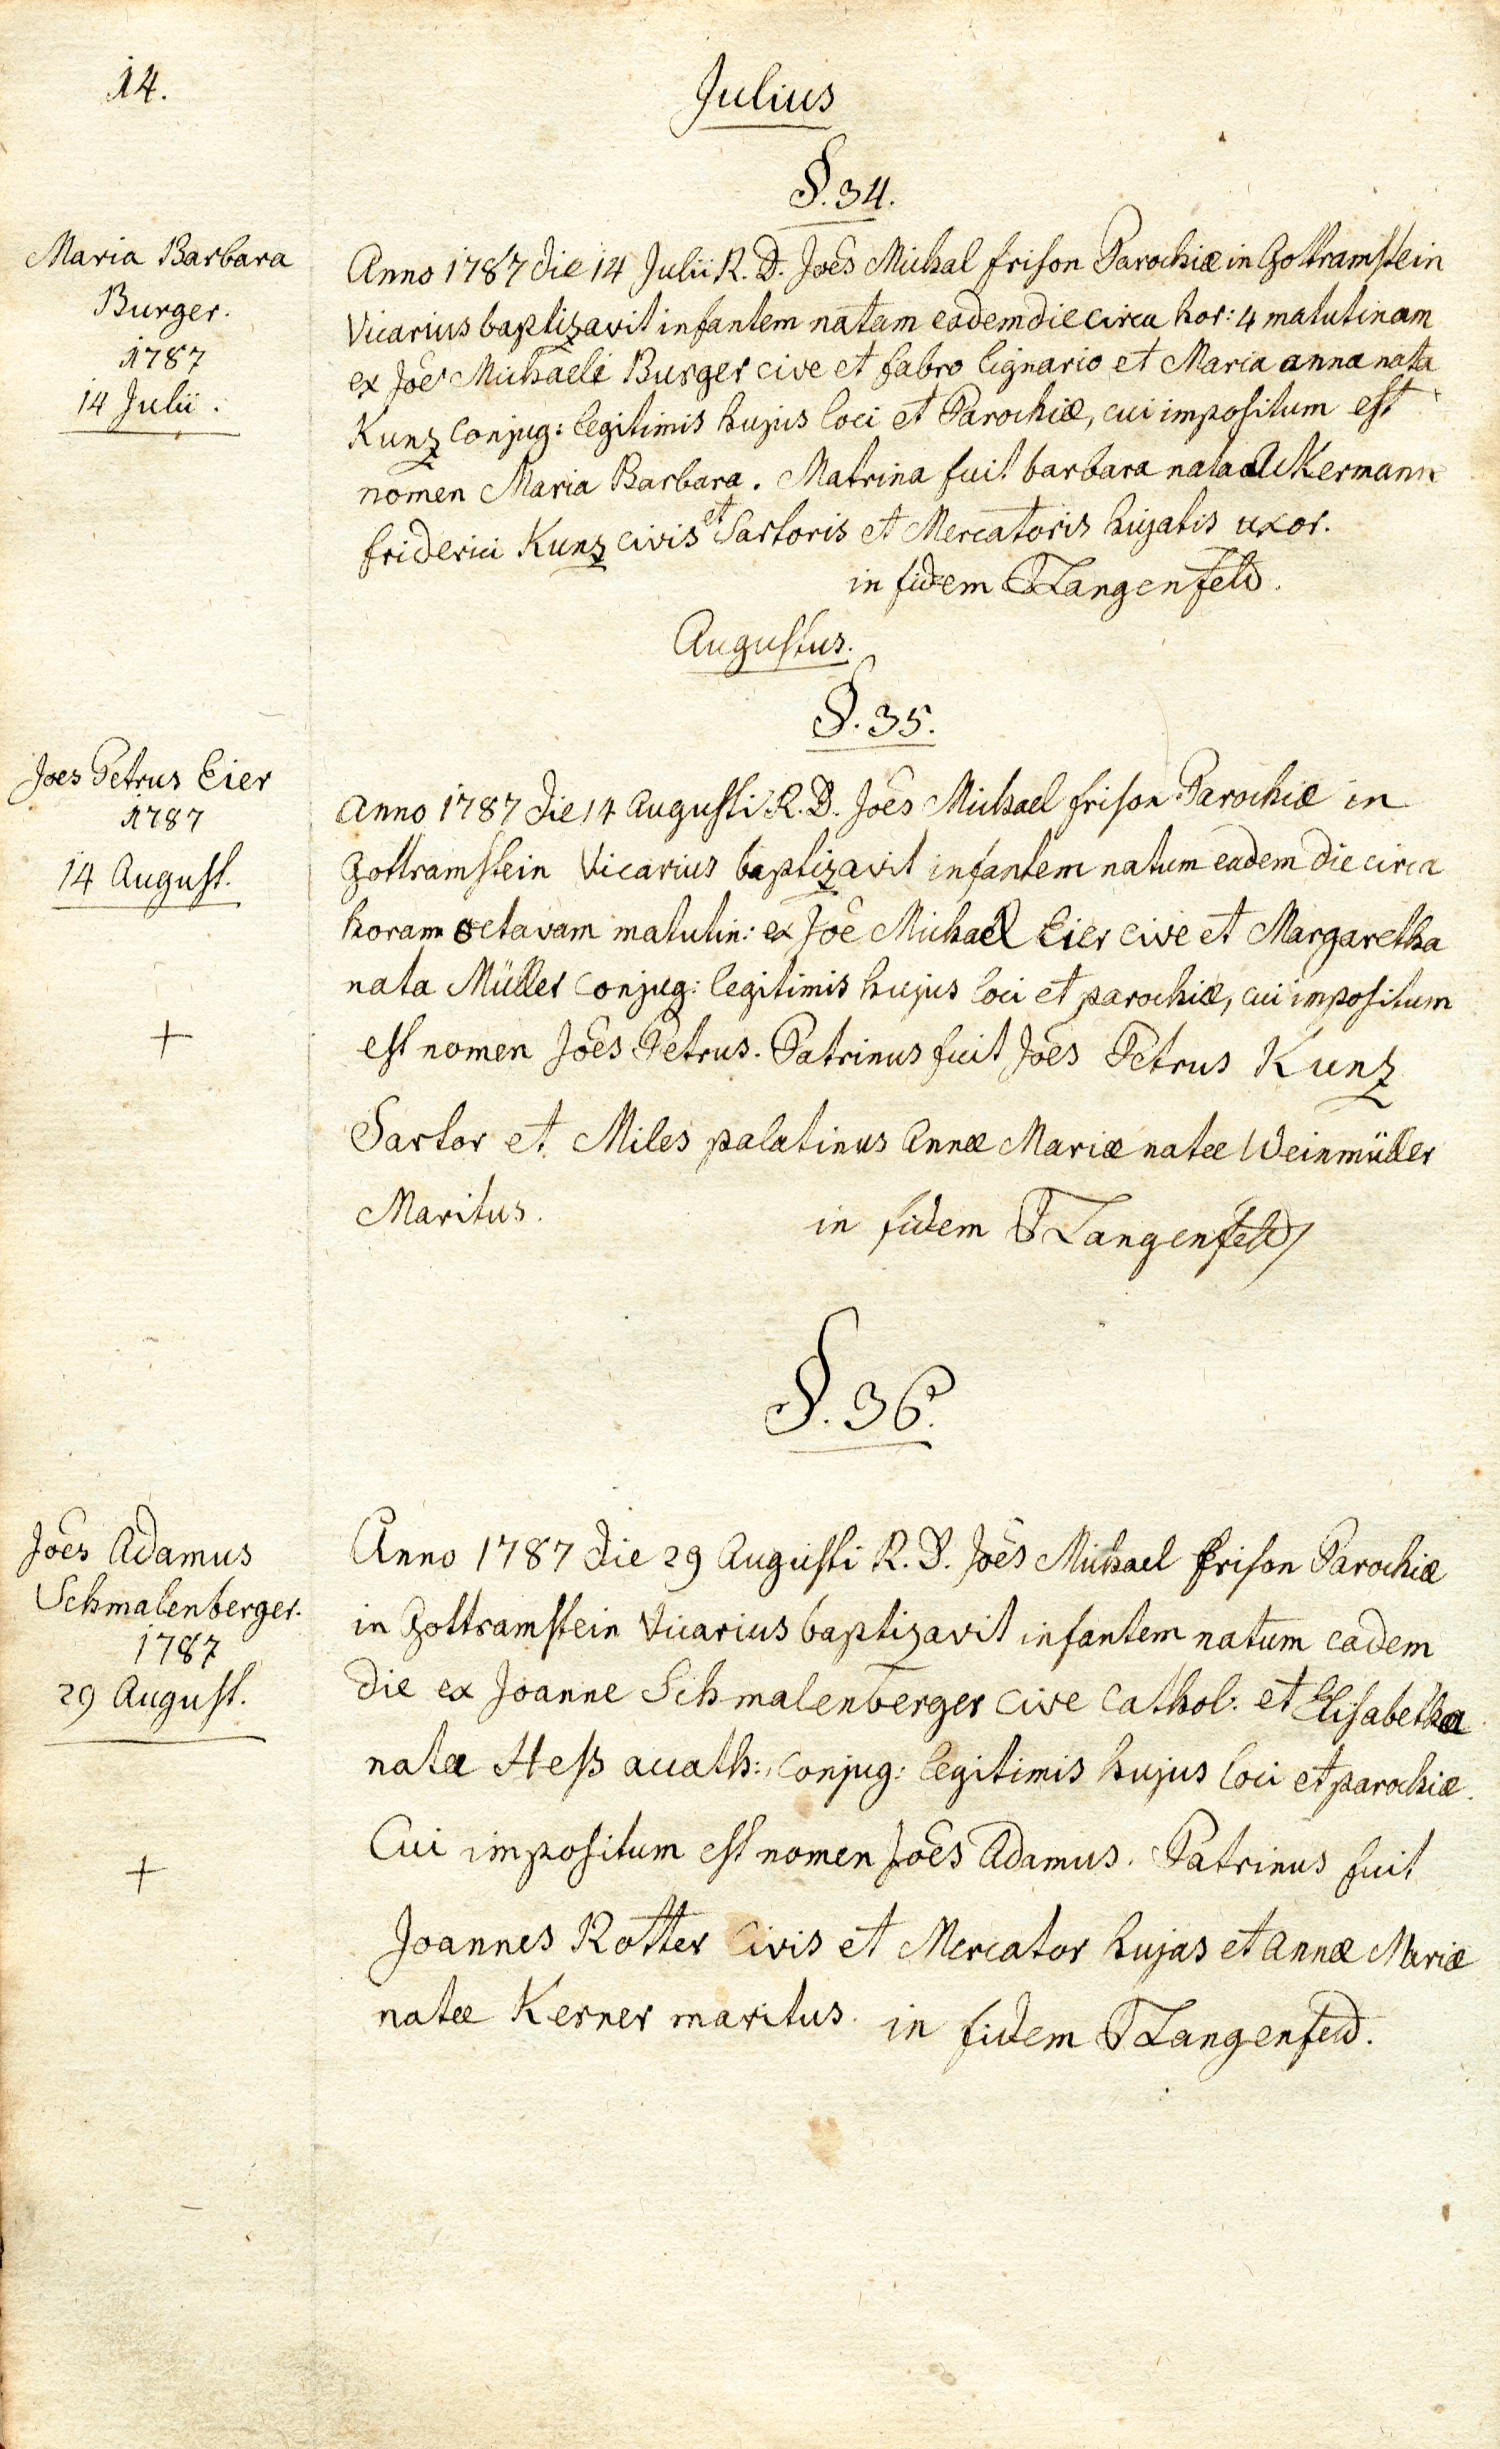 14.
Julius
§. 34.
Maria Barbara
Burger.
1787
14 Julii.
Anno 1787 die 14 Julii R. D. Joês Michal frison Parochiæ in Gottramstein
Vicarius baptizavit infantem natam eadem die circa hor: 4 matutinam
ex Joê Michaele Burger cive et fabro lignario et Maria anna nata
Kunz conjug: legitimis hujus loci et Parochiæ, cui impositum est
nomen Maria Barbara. Matrina fuit barbara nata Ackermann
friderici Kunz civis et Sartoris et Mercatoris hujatis uxor.
in fidem TLangenfeld.
Augustus.
§. 35.
Joes Petrus Eier
1787
14 August.
+
Anno 1787 die 14 Augusti R. D. Joês Michael frison Parochiæ in
Gottramstein Vicarius baptizavit infantem natum eadem die circa
horam octavam matutin: ex Joê Michael Eier cive et Margaretha
nata Müller conjug: legitimis hujus loci et parochiæ, cui impositum
est nomen Joês Petrus. Patrinus fuit Joês Petrus Kunz
Sartor et Miles palatinus Annæ Mariæ natæ Weinmüller
Maritus.
in fidem TLangenfeld
§. 36.
Joês Adamus
Schmalenberger.
1787
29 August.
+
Anno 1787 die 29 Augusti R. D. Joês Michael frison Parochiæ
in Gottramstein Vicarius baptizavit infantem natum eadem
die ex Joanne Schmalenberger cive Cathol: et Elisabetha
nata Heß acath: conjug: legitimis hujus loci et parochiæ.
Cui impositum est nomen Joês Adamus. Patrinus fuit
Joannes Rotter Civis et Mercator hujas et Annæ Mariæ
natæ Kerner maritus. in fidem TLangenfeld.